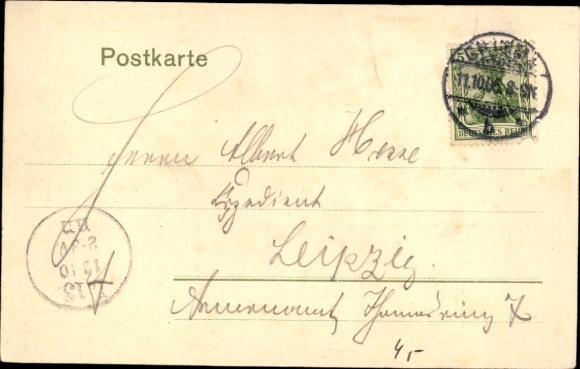 Postkarte
11.10.05. 8-9N.
DEUTSCHES REICH
Herrn Albert Hesse
Expedient
Leipzig.
Armenamt, Thomasring
4,-